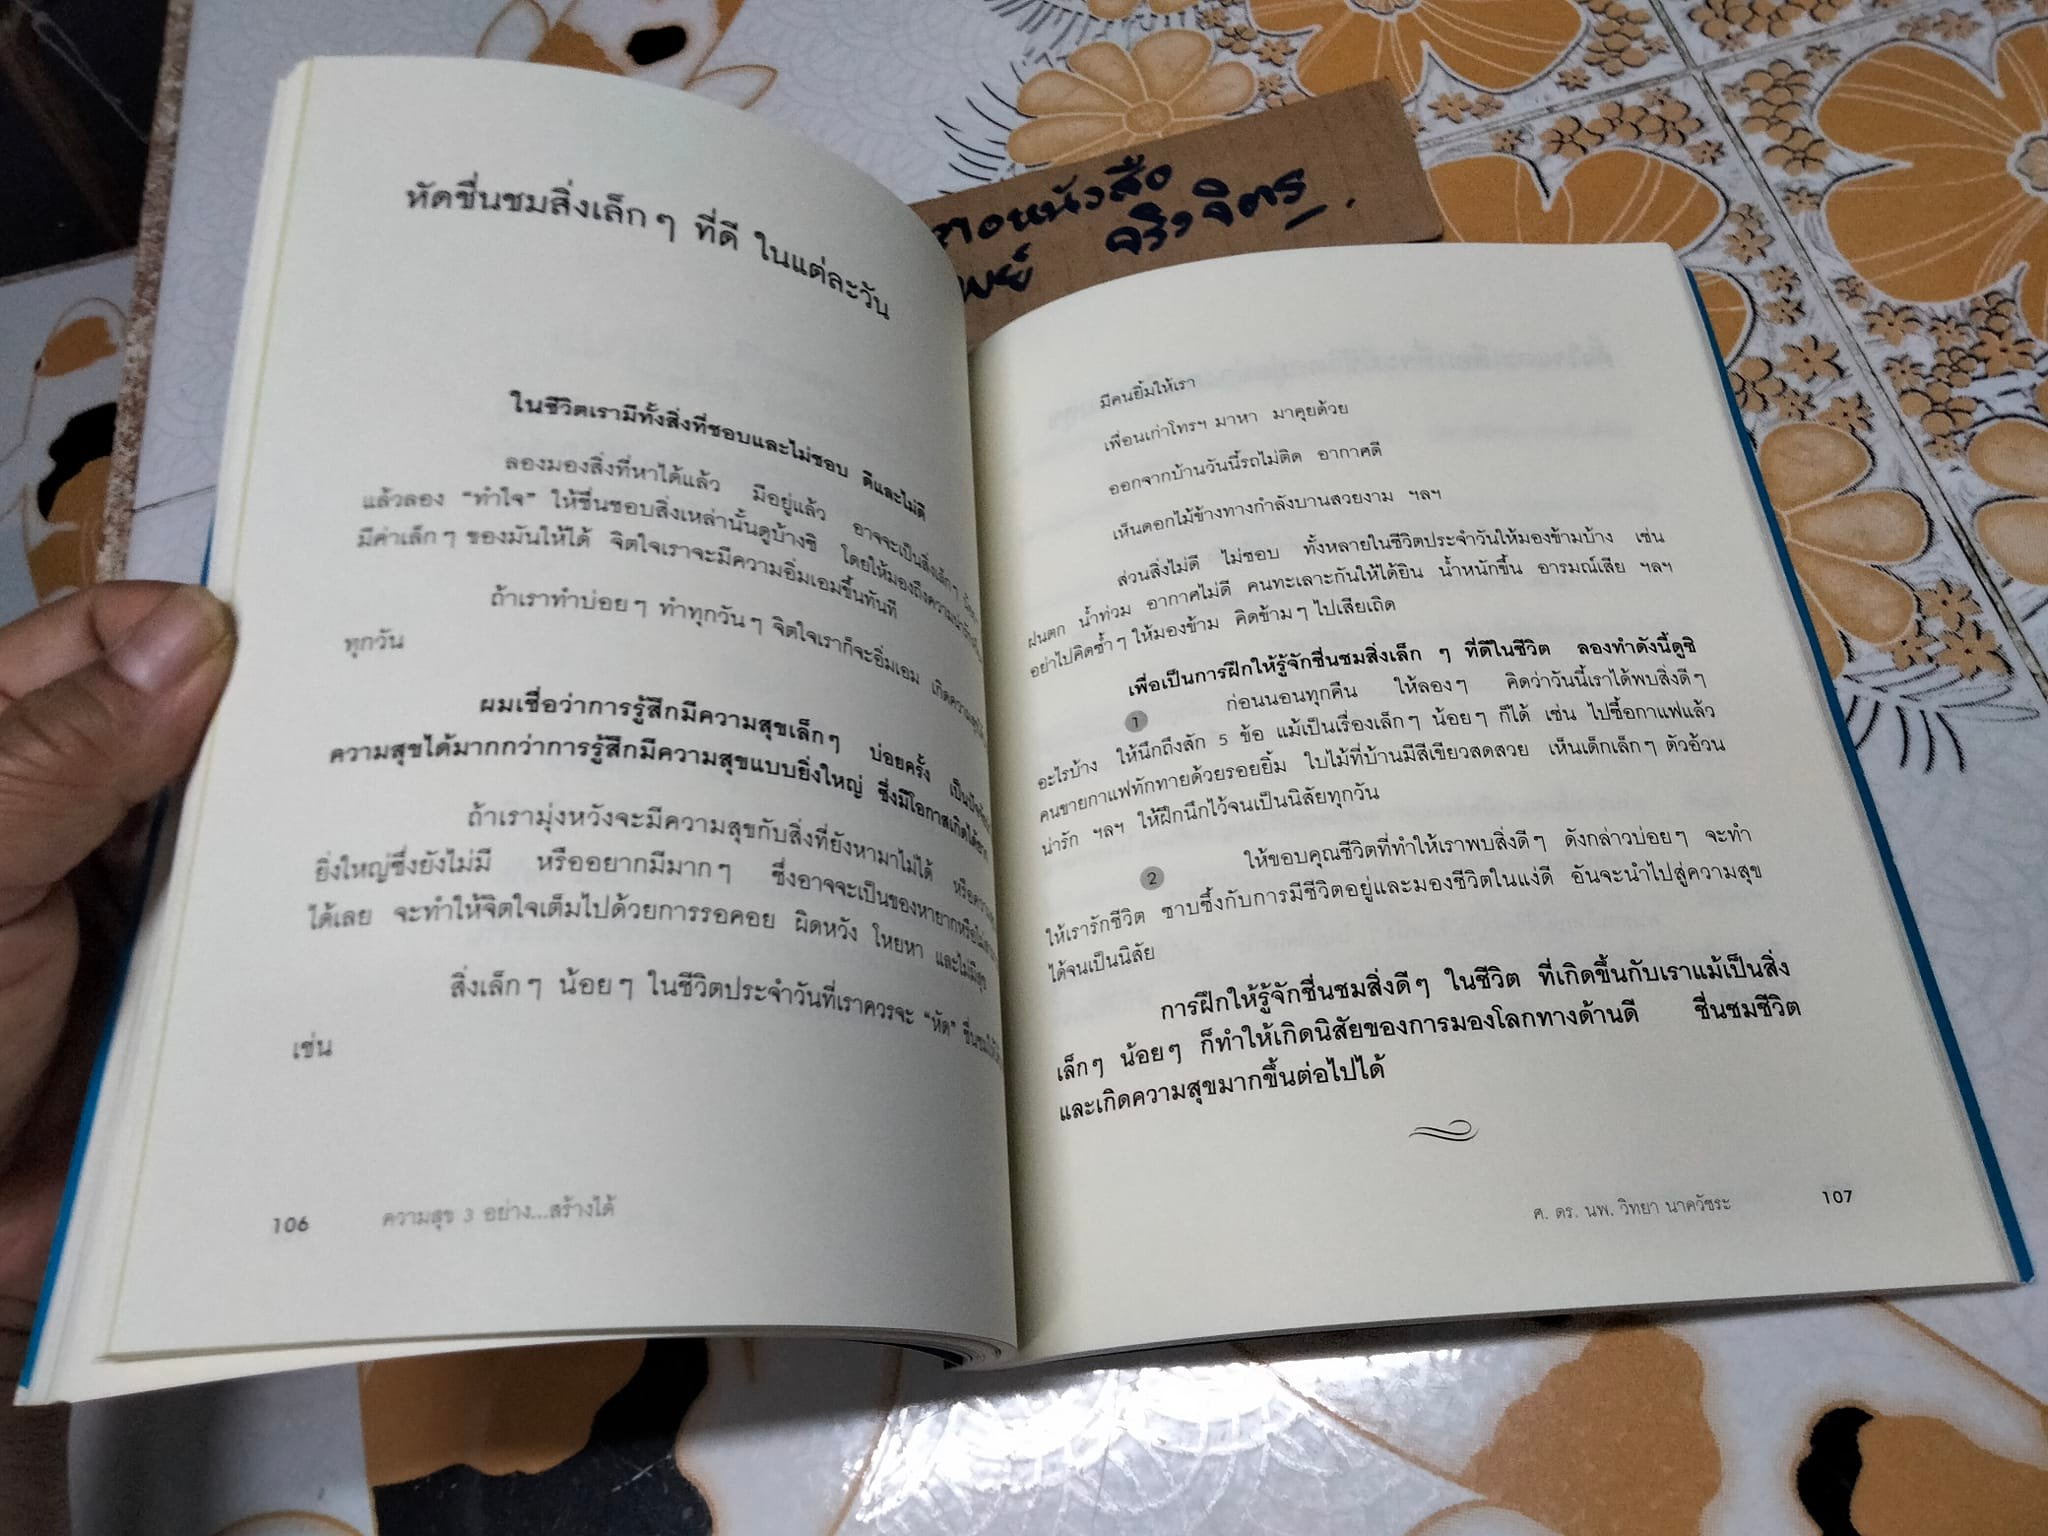 หัดชื่นชมสิ่งเล็กๆ ที่ดี ในแต่ละวัน
ในชีวิตเรามีทั้งสิ่งที่ชอบและไม่ชอบ ดีและไม่ดี
ลองมองสิ่งที่หาได้แล้ว มีอยู่แล้ว อาจจะเป็นสิ่งเล็กๆ
แล้วลอง “ทำใจ” ให้ชื่นชอบสิ่งเหล่านั้นดูบ้างซิ โดยให้มองถึงความน่ารัก
มีค่าเล็กๆ ของมันให้ได้ จิตใจเราจะมีความอิ่มเอมขึ้นทันที
ถ้าเราทำบ่อยๆ ทำทุกวันๆ จิตใจเราก็จะอิ่มเอม เกิดความสุขได้
ทุกวัน
ผมเชื่อว่าการรู้สึกมีความสุขเล็กๆ บ่อยครั้ง เป็นปัจจัย
ความสุขได้มากกว่าการรู้สึกมีความสุขแบบยิ่งใหญ่ ซึ่งมีโอกาสเกิดได้ยาก
ถ้าเรามุ่งหวังจะมีความสุขกับสิ่งที่ยังหามาไม่ได้ หรือความ
ยิ่งใหญ่ซึ่งยังไม่มี หรืออยากมีมากๆ ซึ่งอาจจะเป็นของหายากหรือไม่
ได้เลย จะทำให้จิตใจเต็มไปด้วยการรอคอย ผิดหวัง โหยหา และไม่มีสุข
สิ่งเล็กๆ น้อยๆ ในชีวิตประจำวันที่เราควรจะ “หัด” ชื่นชมให้ได้
เช่น
106 ความสุข 3 อย่าง...สร้างได้
อหนังสือ
พย์ จริงจิตร
มีคนยิ้มให้เรา
เพื่อนเก่าโทรฯ มาหา มาคุยด้วย
ออกจากบ้านวันนี้รถไม่ติด อากาศดี
เห็นดอกไม้ข้างทางกำลังบานสวยงาม ฯลฯ
ส่วนสิ่งไม่ดี ไม่ชอบ ทั้งหลายในชีวิตประจำวันให้มองข้ามบ้าง เช่น
ฝนตก น้ำท่วม อากาศไม่ดี คนทะเลาะกันให้ได้ยิน น้ำหนักขึ้น อารมณ์เสีย ฯลฯ
อย่าไปคิดซ้ำๆ ให้มองข้าม คิดข้ามๆ ไปเสียเถิด
เพื่อเป็นการฝึกให้รู้จักชื่นชมสิ่งเล็ก ๆ ที่ดีในชีวิต ลองทำดังนี้ดูซิ
1 ก่อนนอนทุกคืน ให้ลองๆ คิดว่าวันนี้เราได้พบสิ่งดีๆ
อะไรบ้าง ให้นึกถึงสัก 5 ข้อ แม้เป็นเรื่องเล็กๆ น้อยๆ ก็ได้ เช่น ไปซื้อกาแฟแล้ว
คนขายกาแฟทักทายด้วยรอยยิ้ม ใบไม้ที่บ้านมีสีเขียวสดสวย เห็นเด็กเล็กๆ ตัวอ้วน
น่ารัก ฯลฯ ให้ฝึกนึกไว้จนเป็นนิสัยทุกวัน
2 ให้ขอบคุณชีวิตที่ทำให้เราพบสิ่งดีๆ ดังกล่าวบ่อยๆ จะทำ
ให้เรารักชีวิต ซาบซึ้งกับการมีชีวิตอยู่และมองชีวิตในแง่ดี อันจะนำไปสู่ความสุข
ได้จนเป็นนิสัย
การฝึกให้รู้จักชื่นชมสิ่งดีๆ ในชีวิต ที่เกิดขึ้นกับเราแม้เป็นสิ่ง
เล็กๆ น้อยๆ ก็ทำให้เกิดนิสัยของการมองโลกทางด้านดี ชื่นชมชีวิต
และเกิดความสุขมากขึ้นต่อไปได้
ศ. ดร. นพ. วิทยา นาควัชระ 107